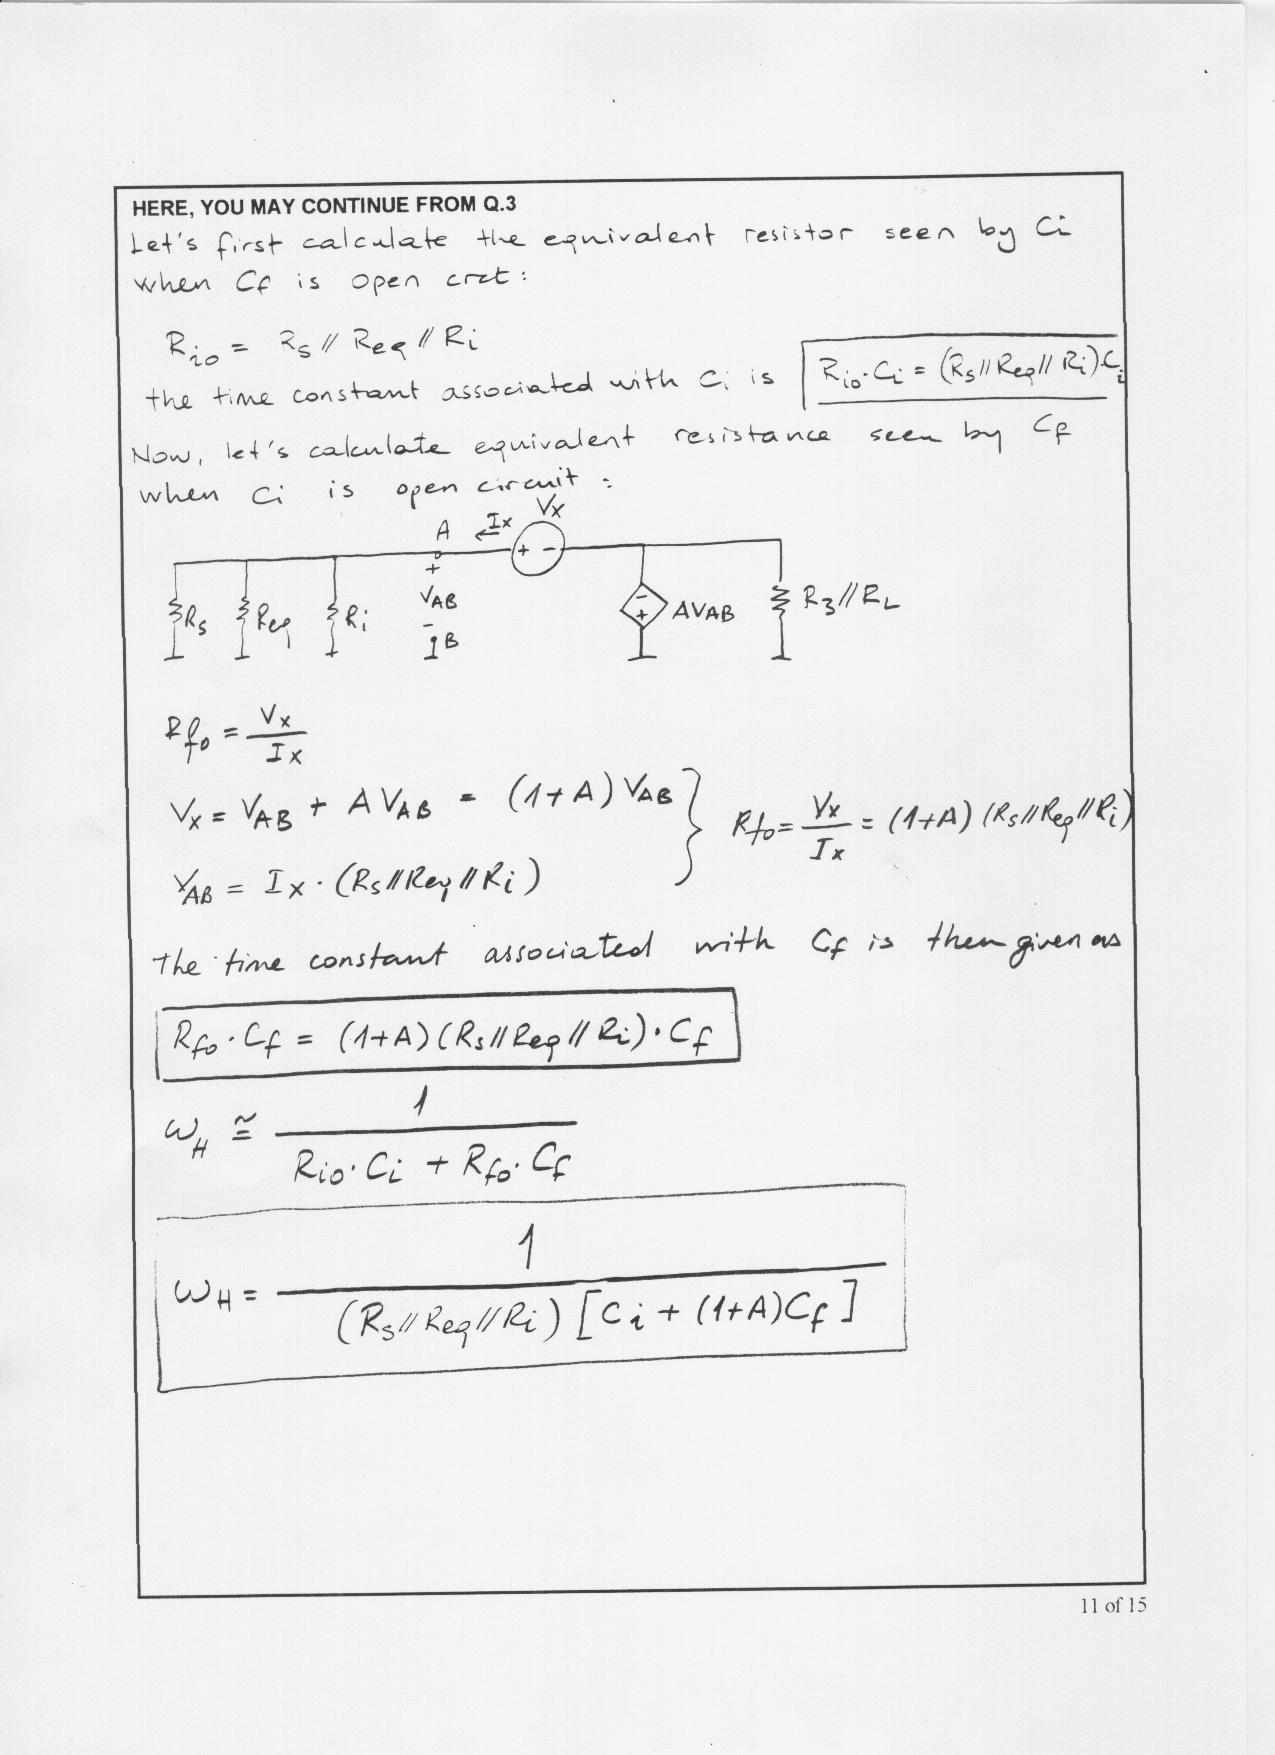 HERE, YOU MAY CONTINUE FROM Q.3
Let's first calculate the equivalent resistor seen by Ci
when Cf is open crct:
Rio = Rs // Req // Ri
the time constant associated with Ci is Rio·Ci = (Rs//Req//Ri)·Ci
Now, let's calculate equivalent resistance seen by Cf
when Ci is open circuit:
A Ix Vx
+ + -
Rs Req Ri VAB - + AVAB R3//RL
- B
Rfo = Vx / Ix
Vx = VAB + AVAB = (1+A) VAB } Rfo = Vx / Ix = (1+A) (Rs//Req//Ri)
VAB = Ix · (Rs//Req//Ri)
The time constant associated with Cf is then given as
Rfo · Cf = (1+A) (Rs//Req//Ri) · Cf
ωH ≅ 1 / Rio·Ci + Rfo·Cf
ωH = 1 / (Rs//Req//Ri) [Ci + (1+A)Cf]
11 of 15